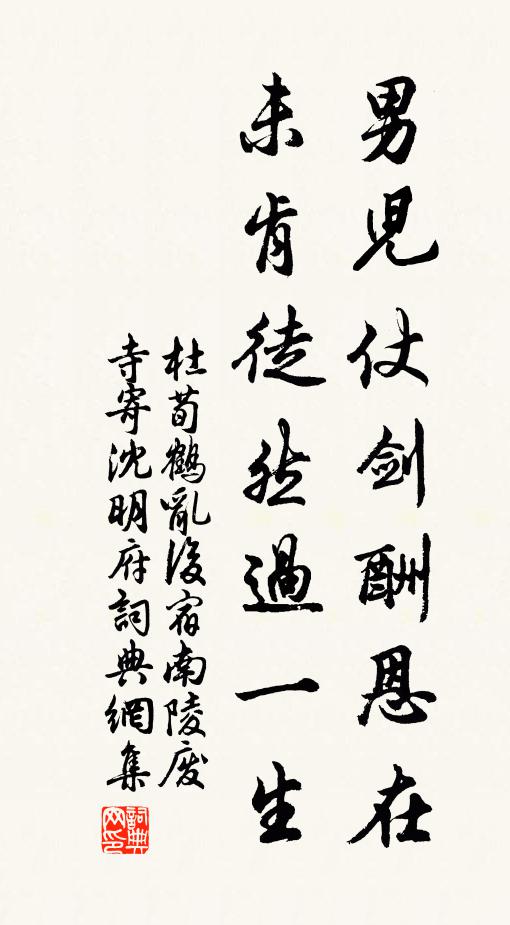 男兒仗劍酬恩在
未肯徒然過一生
杜荀鶴亂後宿南陵廢
寺寄沈明府詞典網集
詞典
网印